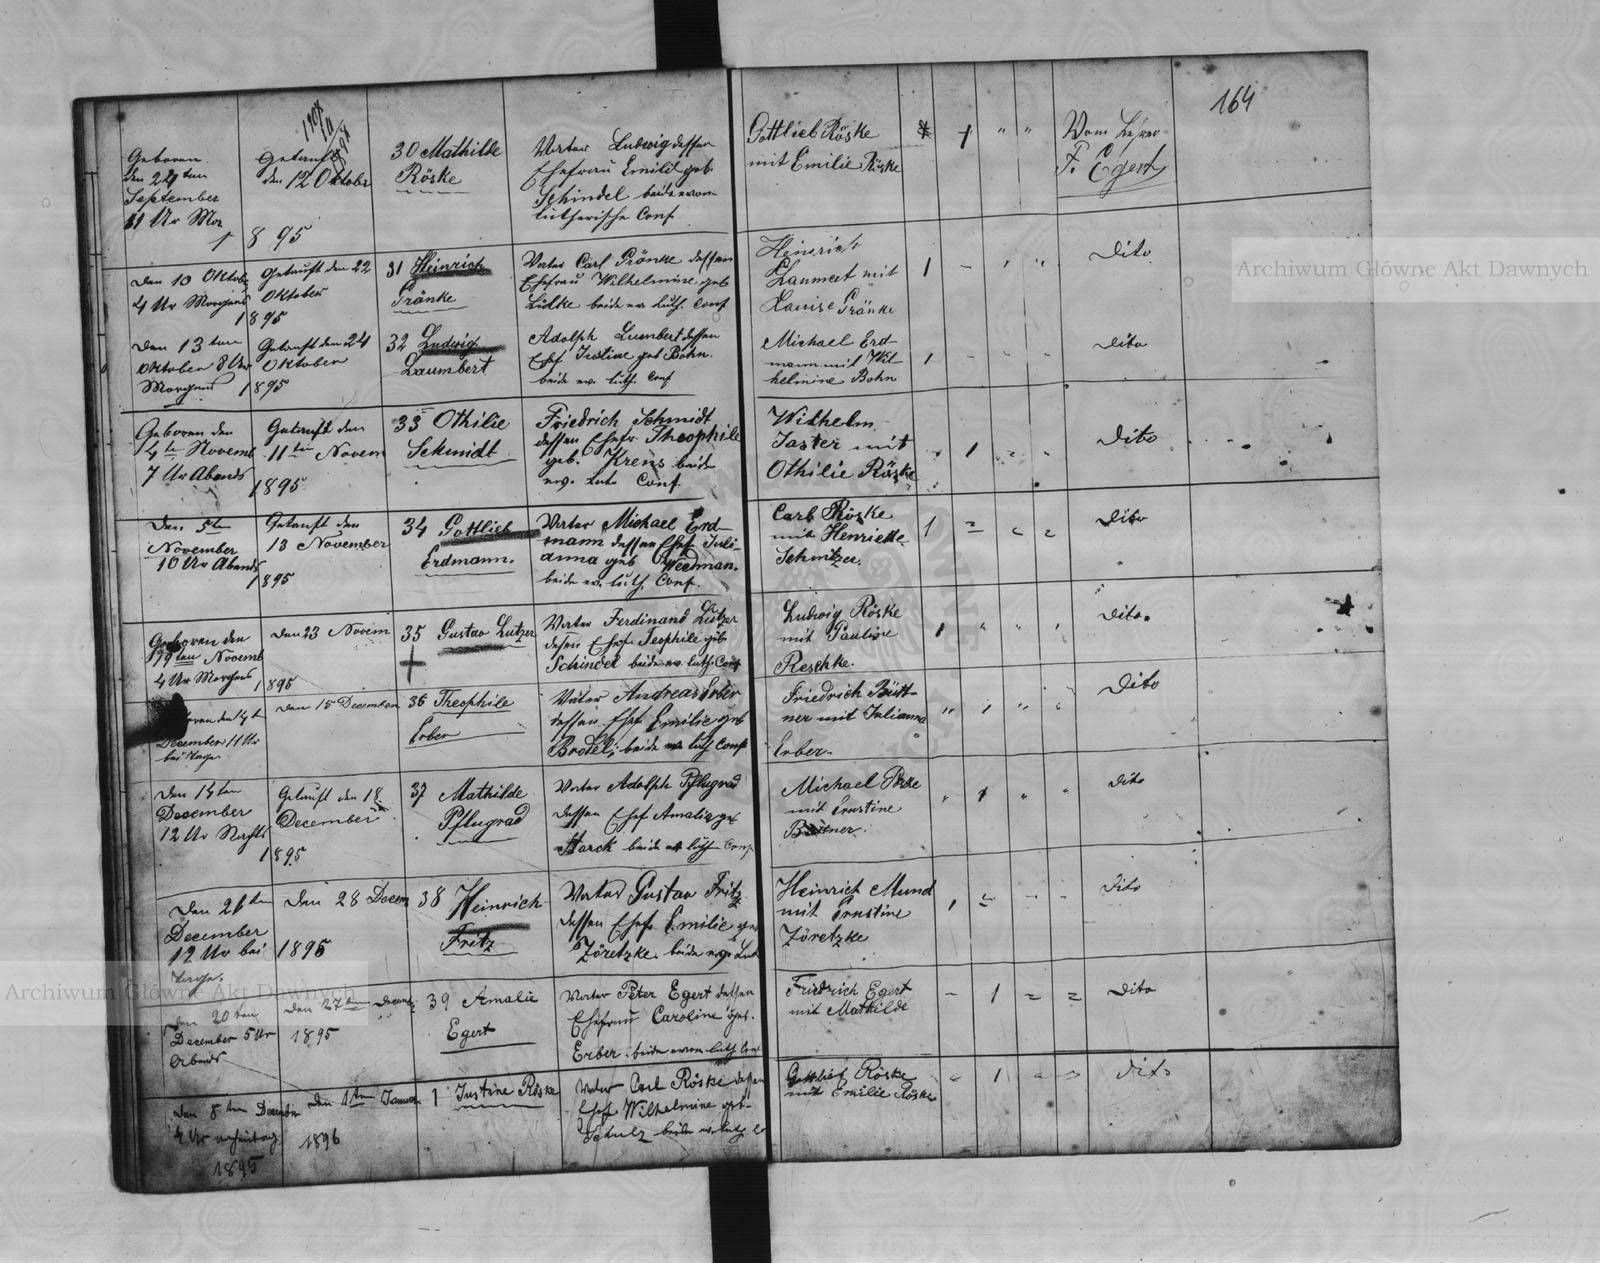 164
Geboren
den 24 ten
September
11 Ur Mor
1895
Getauft
den 12 Oktober
30 Mathilde
Röske
Vater Ludwig dessen
Ehefrau Emilie geb.
Schindel beide evan
lutherische Conf
Gottlieb Röske
mit Emilie Röske
Vom Lehrer
F. Egert
Den 10 Oktob
4 Ur Morgens
1895
Getauft den 22
Oktober
31 Heinrich
Gränke
Vater Carl Gränke dessen
Ehefrau Wilhelmine geb
Lüdke beide ev luth. Conf
Heinrich
Laumert mit
Lauise Gränke
Dito
Den 13 ten
Oktober 8 Ur
Morgens
1895
Getauft den 24
Oktober
32 Ludwig
Laumbert
Adolph Lumbert dessen
Ehef Justine geb Bohn.
beide ev. luth. Conf
Michael Erd-
mann mit Wil-
helmine Bohn
Dito
Geboren den
4 ten Novemb
7 Ur Abends
1895
Getauft den
11 ten Novem
33 Othilie
Schmidt
Friedrich Schmidt
dessen Ehefr. Theophile
geb. Krens beide
ev. Conf.
Wilhelm
Jaster mit
Othilie Röske
Dito
Den 5 ten
November
10 Ur Abends
1895
Getauft den
13 November
34 Gottlieb
Erdmann.
Vater Michael Erd-
mann dessen Ehef. Juli-
anna geb Weedman.
beide ev. luth. Conf.
Carl Röske
mit Henriette
Schmitzer.
Dito
Geboren den
19 ten Novemb
4 Ur Morgens
1895
Den 23 Novem
35 Gustav Lutzer
Vater Ferdinand Lutzer
dessen Ehef Teophile geb
Schindel beide ev. luth. Conf
Ludwig Röske
mit Pauline
Reschke.
Dito.
December 11 Ur
bei Tage
Den 15 December
36 Theophile
Erber
Vater Andreas Erber
dessen Ehef Emilie geb
Brodel; beide ev luth Conf
Friedrich Bütt-
ner mit Julianna
Erber
Dito
Den 14 ten
December
12 Ur Nachts
1895
Getauft den 18
December
37 Mathilde
Pflugrad
Vater Adolph Pflugrad
dessen Ehef Amalie geb
Starck beide ev luth Conf
Michael
mit Ernstine
Dito
Den 21 ten
December
12 Ur bei
Tage
Den 28 Decem
1895
38 Heinrich
Fritz
Vater Gustav Fritz
dessen Ehef. Emilie geb
Zöretzke beide
Heinrich Mund
mit Ernstine
Zöretzke
Dito
Den 20 ten
December 5 Ur
Abends
Den 27 ten Decemb
1895
39 Amalie
Egert
Vater Peter Egert dessen
Ehefrau Caroline geb.
Erber beide evan luth Conf
Friedrich Egert
mit Mathilde
Dito
Den 8 ten December
4 Ur
1895
Den 1 ten Januar
1896
1 Justine Röske
Vater Carl Röske dessen
Ehef Wilhelmine geb.
Schulz beide ev. luth. Co
Gottlieb Röske
mit Emilie Röske
Dito
Archiwum Główne Akt Dawnych
Archiwum Główne Akt Dawnych